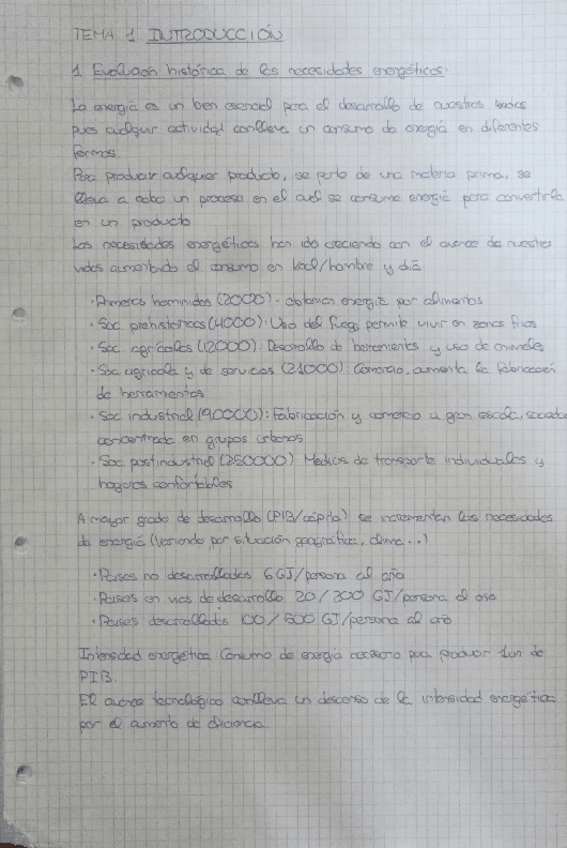 TEMA 1 INTRODUCCIÓN
1. Evolución histórica de las necesidades energéticas:
La energía es un bien esencial para el desarrollo de nuestras vidas
pues cualquier actividad conlleva un consumo de energía en diferentes
formas.
Para producir cualquier producto, se parte de una materia prima, se
lleva a cabo un proceso en el cual se consume energía para convertirla
en un producto
Las necesidades energéticas han ido creciendo con el avance de nuestras
vidas aumentando el consumo en kcal/hombre y día
· Primeros homínidos (2000) - obtenían energía por alimentos
· Soc. prehistóricas (4000): Uso del fuego permite vivir en zonas frías
· Soc. agrícolas (12000): Desarrollo de herramientas y uso de animales
· Soc. agrícola y de servicios (21000): Comercio, aumenta la fabricación
de herramientas
· Soc. industrial (90000): Fabricación y comercio a gran escala, sociedad
concentrada en grupos urbanos
· Soc. postindustrial (250000): Medios de transporte individuales y
hogares confortables
A mayor grado de desarrollo (PIB/cápita) se incrementan las necesidades
de energía (variando por situación geográfica, clima...)
· Países no desarrollados 6 GJ/persona al año
· Países en vías de desarrollo 20/300 GJ/persona al año
· Países desarrollados 100/500 GJ/persona al año
Intensidad energética: Consumo de energía necesario para producir 1 un de
PIB.
El avance tecnológico conlleva un descenso de la intensidad energética
por el aumento de eficiencia